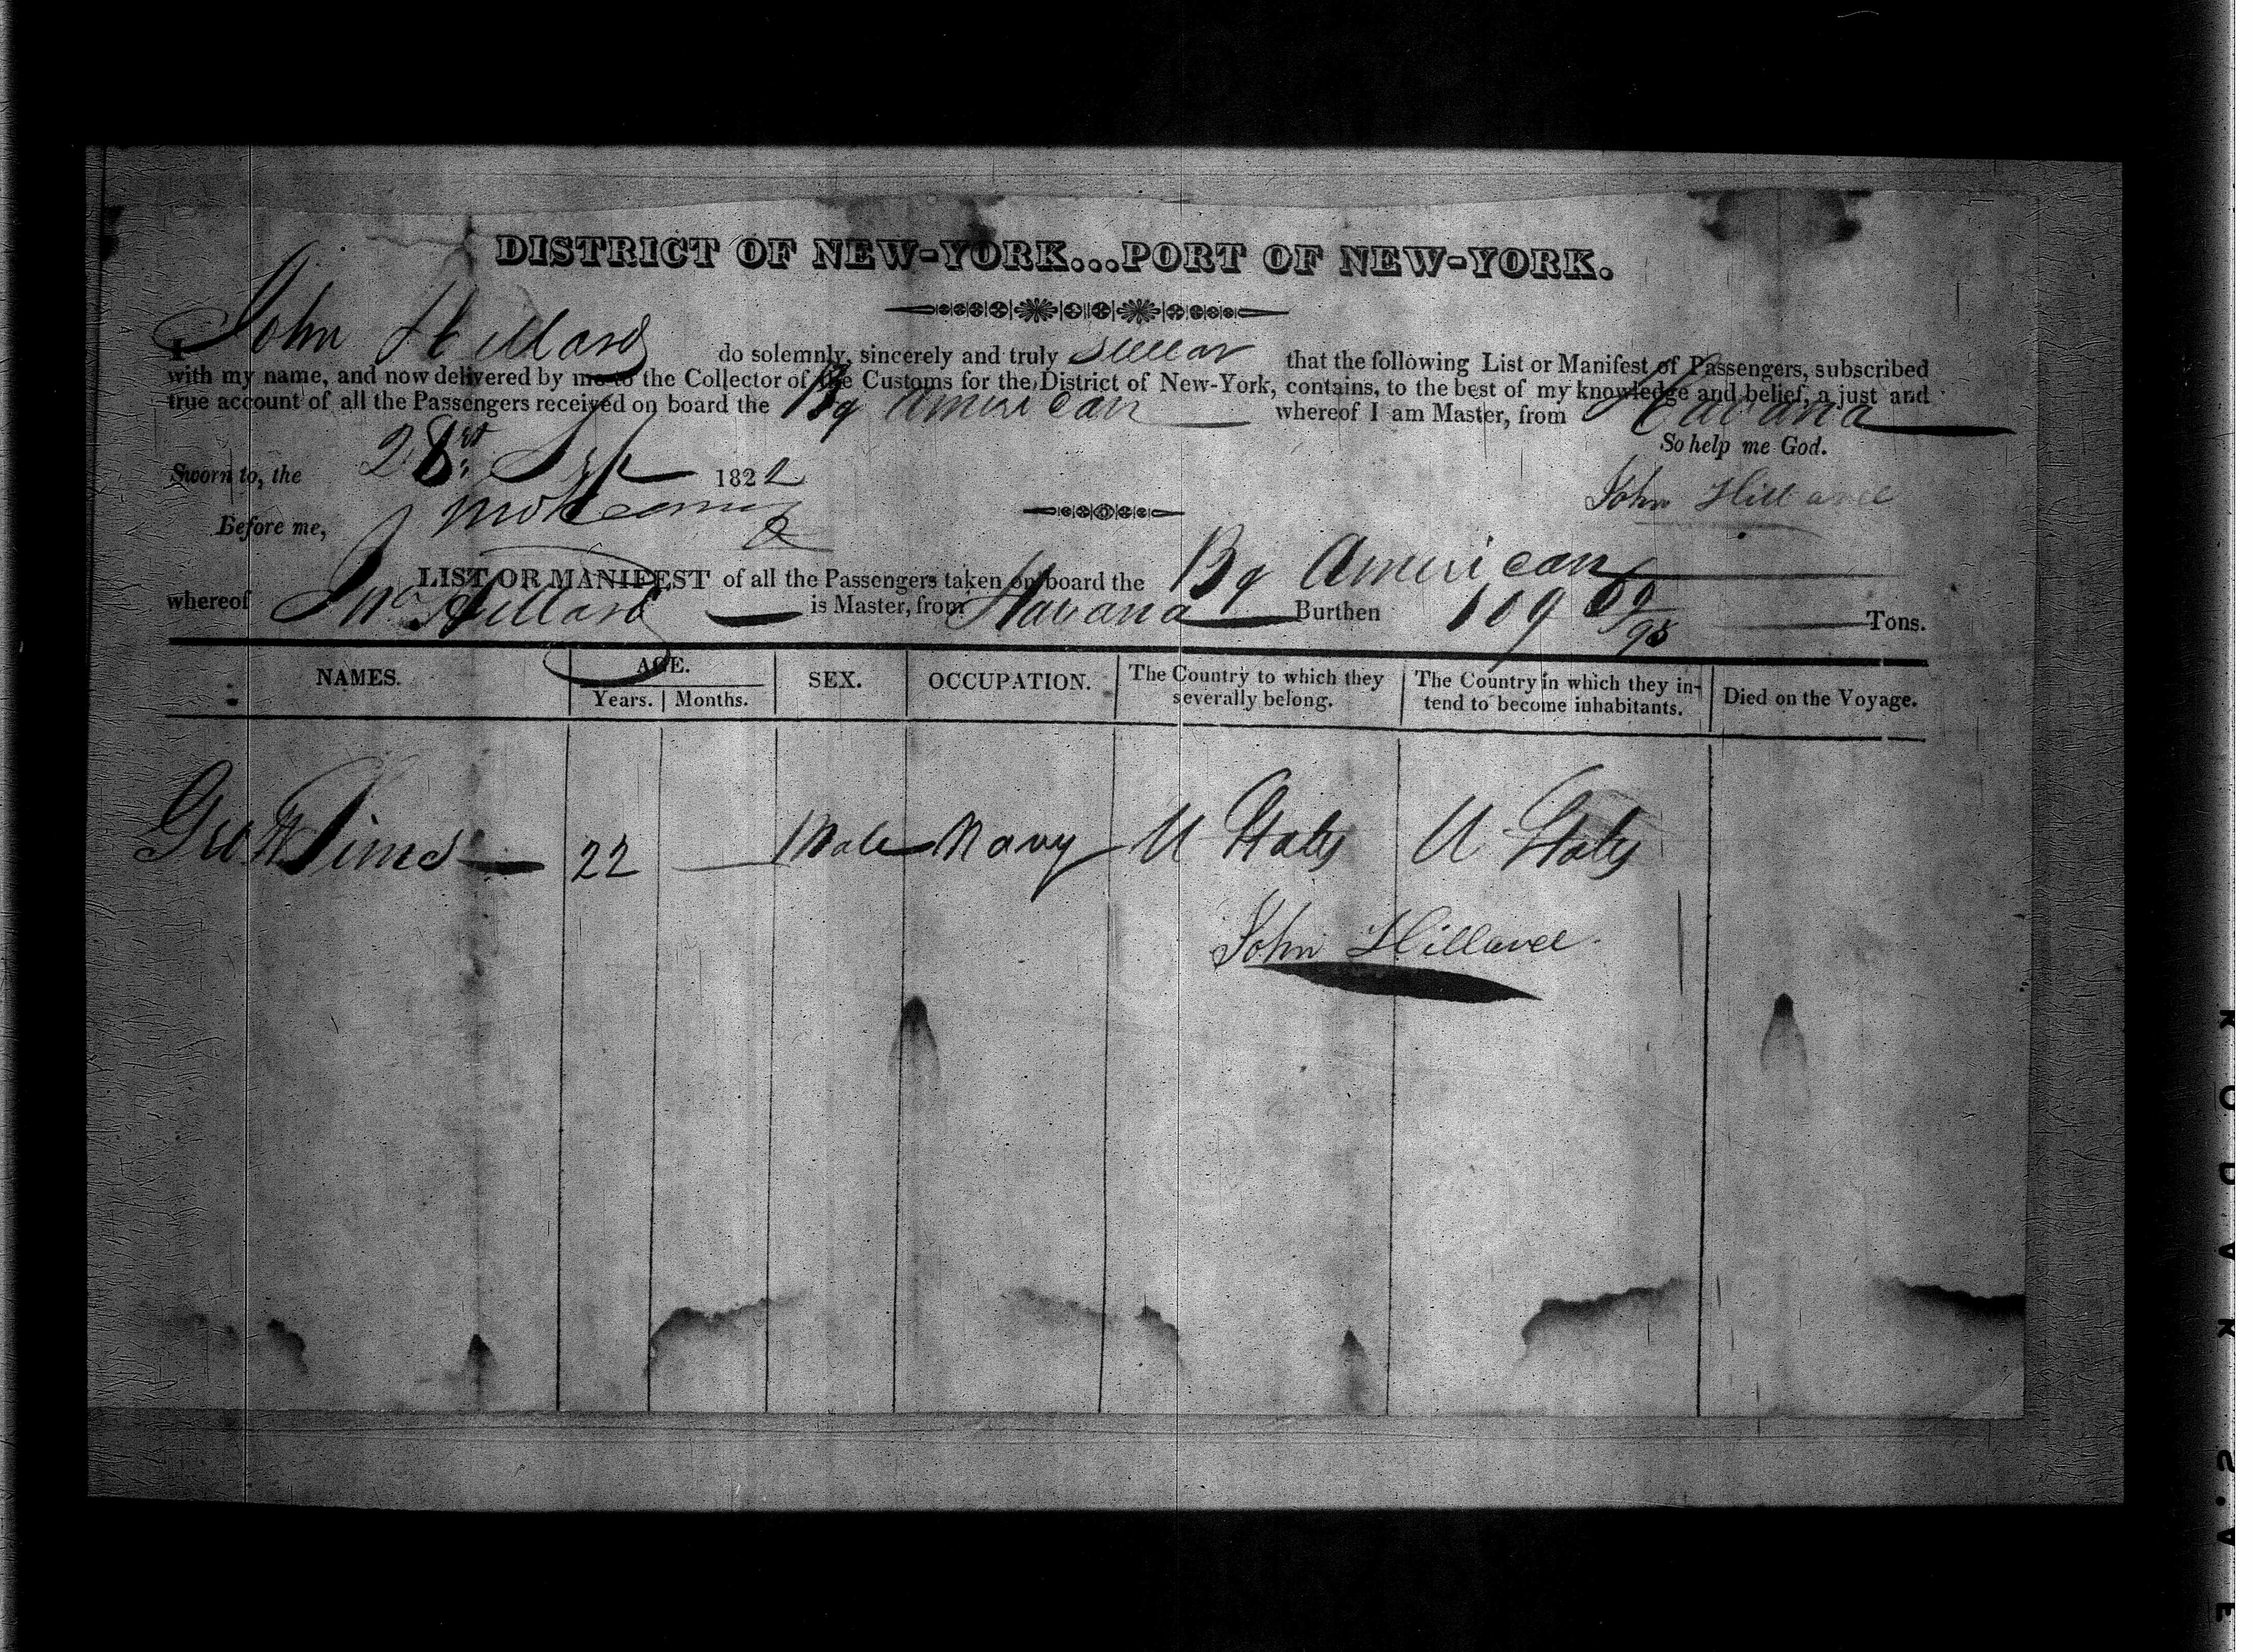 DISTRICT OF NEW-YORK...PORT OF NEW-YORK.
I John Hillard do solemnly, sincerely and truly swear that the following List or Manifest of Passengers, subscribed
with my name, and now delivered by me to the Collector of the Customs for the District of New-York, contains, to the best of my knowledge and belief, a just and
true account of all the Passengers received on board the Bg American whereof I am Master, from Havana
So help me God.
Sworn to, the 28 Sep 1822
John Hillard
Before me,
LIST OR MANIFEST of all the Passengers taken on board the Bg American
whereof Jno Hillard is Master, from Havana Burthen 109 /95 Tons.
NAMES. AGE. SEX. OCCUPATION. The Country to which they severally belong. The Country in which they in-tend to become inhabitants. Died on the Voyage.
Years. Months.
Geo Sims 22 Male Navy U States U States
John Hillard
KODAK S.AFE